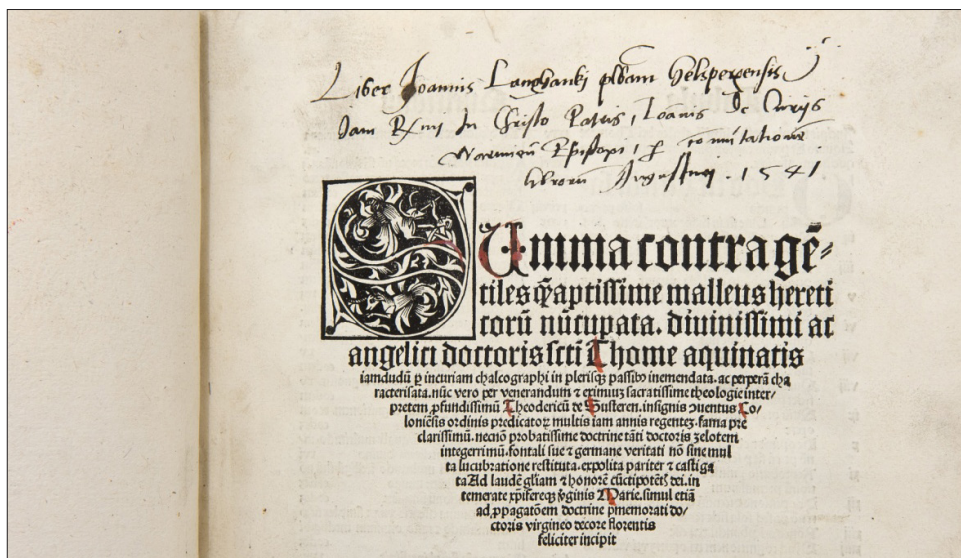 Liber Joannis Langhanki plbani Helspergensis
Iam Rmi In Christo Patris, Ioanis De Curijs
Warmien Episcopi, p comutatione
librorū Augustini . 1541
SUmma contra gē-
tiles ꝙ̄aptissime malleus hereti
corū nūcupata. diuinissimi ac
angelici doctoris scti Thome aquinatis
iamdudū ꝑ incuriam chalcographi in pleriscꝫ passibꝰ inemendata. ac perperā cha
racterisata. nūc vero per venerandum ⁊ eximiuꝫ sacratissime theologie inter-
pretem ꝓfundissimū Theodericū de Susteren. insignis ꝯuentus Co-
loniēsis ordinis predicatoꝝ multis iam annis regenteꝫ. fama pre
clarissimū. necnō probatissime doctrine tāti doctoris ꝫelotem
integerrimū. fontali sue ⁊ germane veritati nō sine mul
ta lucubratione restituta. expolita pariter ⁊ castiga
ta Ad laudē gl̄iam ⁊ honorē cūctipotēt̄ dei. in
temerate xp̄ifereqꝫ v̓ginis Marie. simul etiā
ad ꝓpagatōem doctrine p̄memorati do-
ctoris virgineo decore florentis
feliciter incipit